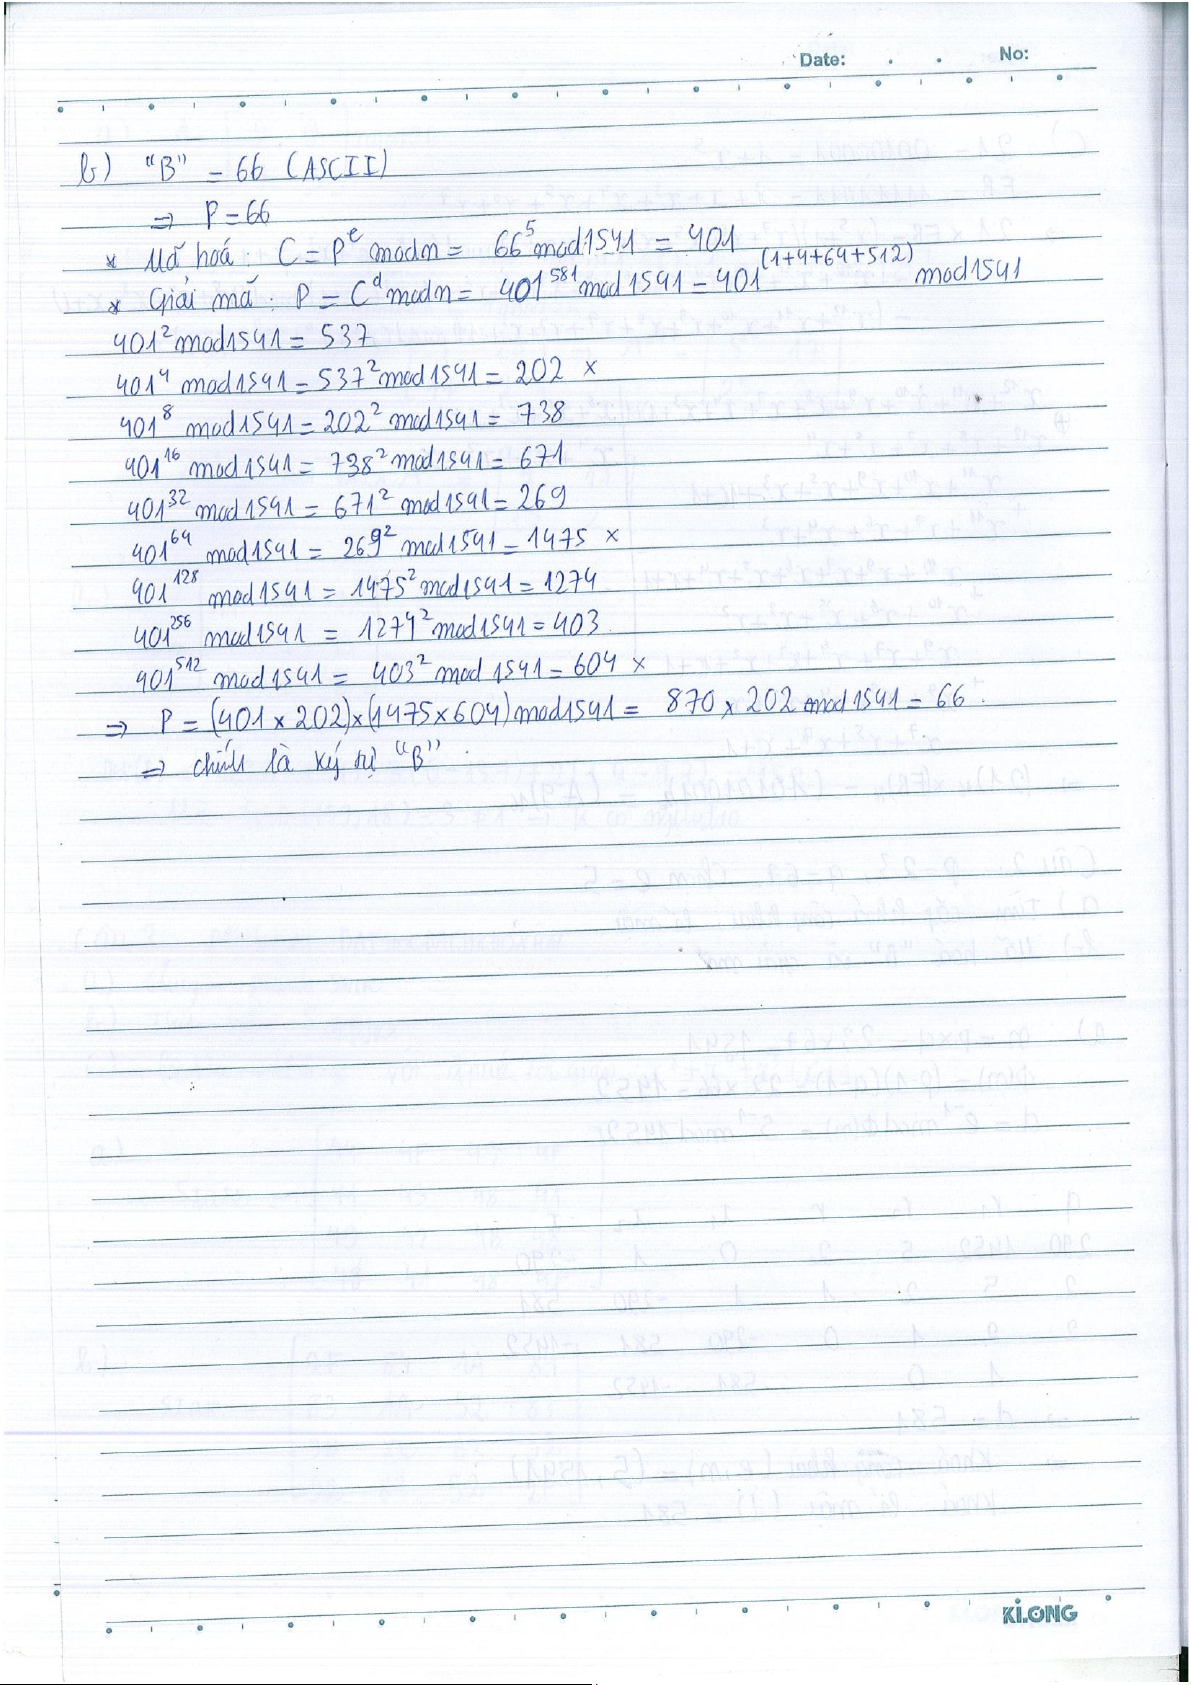 Date: No:
b) "B" = 66 (ASCII)
⇒ P = 66
* Mã hoá: C = P^e mod n = 66^5 mod 1541 = 401
* Giải mã: P = C^d mod n = 401^581 mod 1541 = 401^(1+4+64+512) mod 1541
401^2 mod 1541 = 537
401^4 mod 1541 = 537^2 mod 1541 = 202 ×
401^8 mod 1541 = 202^2 mod 1541 = 738
401^16 mod 1541 = 738^2 mod 1541 = 671
401^32 mod 1541 = 671^2 mod 1541 = 269
401^64 mod 1541 = 269^2 mod 1541 = 1475 ×
401^128 mod 1541 = 1475^2 mod 1541 = 1274
401^256 mod 1541 = 1274^2 mod 1541 = 403
401^512 mod 1541 = 403^2 mod 1541 = 604 ×
⇒ P = (401 × 202) × (1475 × 604) mod 1541 = 870 × 202 mod 1541 = 66.
⇒ chính là ký tự "B".
KI.ONG